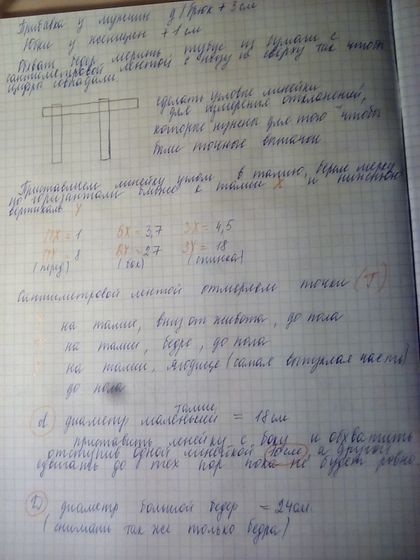 Прибавка у мужчины д/брюк + 3 см
Юбки у женщины + 1 см
Обхват бедер мерить, тубус из бумаги с
сантиметровой лентой снизу и сверху так чтобы
цифры совпадали
сделать угловые линейки
для измерения отклонений,
которые нужены для того чтобы
были точного вытачки
Приставляем линейку углом в талию, берем мерку
по горизонтали ближе к талии X и нижнюю
вертикаль У
ПХ = 1 БХ = 3,7 ЗХ = 4,5
ПУ = 8 БУ = 27 ЗУ = 18
(перед) (бок) (спинка)
Сантиметровой лентой отмеряем точки (Т)
на талие, вниз от живота, до пола
на талие, бедре, до пола
на талие, ягодице (самая выпуклая часть)
до пола
d диаметр маленький талии = 18 см
приставить линейку с боку и обхватить
отступив одной линейкой 10 см, а другой
сдвигать до тех пор пока не будет ровно
D диаметр большой бедер = 24 см
(снимали так же только бедра)